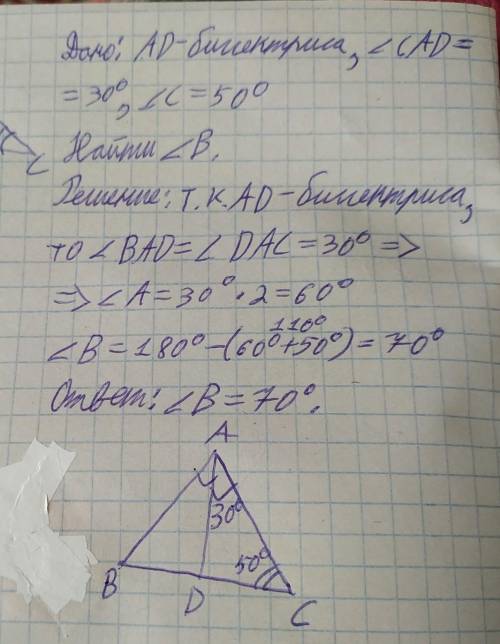 Дано: AD-биссектриса, ∠CAD=
=30°, ∠C=50°
Найти ∠B.
C
Решение: т.к. AD-биссектриса,
то ∠BAD=∠DAC=30° =>
=> ∠A=30°·2=60°
110°
∠B=180°-(60°+50°)=70°
Ответ: ∠B=70°.
A
30°
50°
B
D
C